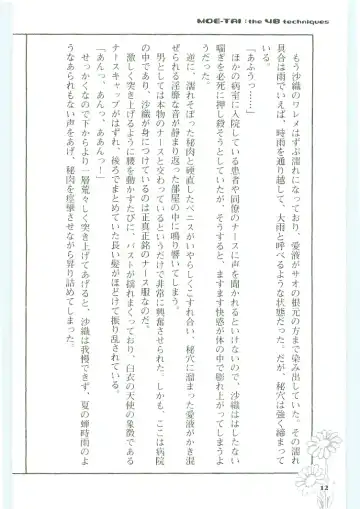 MOE-TAI :the 48 techniques
もう沙織のワレメはずぶ濡れになっており、愛液がサオの根元の方まで染み出していた。その濡れ
具合は雨でいえば、時雨を通り越して、大雨と呼べるような状態だった。だが、秘穴は強く締まって
いる。
「あふうっ……」
ほかの病室に入院している患者や同僚のナースに声を聞かれるといけないので、沙織ははしたない
喘ぎを必死に押し殺そうとしていたが、そうすると、ますます快感が体の中で膨れ上がってしまうよ
うだった。
逆に、濡れそぼった秘肉と硬直したペニスがいやらしくこすれ合い、秘穴に溜まった愛液がかき混
ぜられる淫靡な音が静まり返った部屋の中に鳴り響いてしまう。
男としては本物のナースと交わっているというだけで非常に興奮させられた。しかも、ここは病院
の中であり、沙織が身につけているのは正真正銘のナース服なのだ。
激しく突き上げるように腰を動かすたびに、バストが揺れまくっており、白衣の天使の象徴である
ナースキャップがはずれ、後ろでまとめていた長い髪がほどけて振り乱されている。
「あんっ、あんっ、ああんっ！」
せっかくなので下からより一層荒々しく突き上げてあげると、沙織は我慢できず、夏の蝉時雨のよ
うなあられもない声をあげ、秘肉を痙攣させながら昇り詰めてしまった。
12